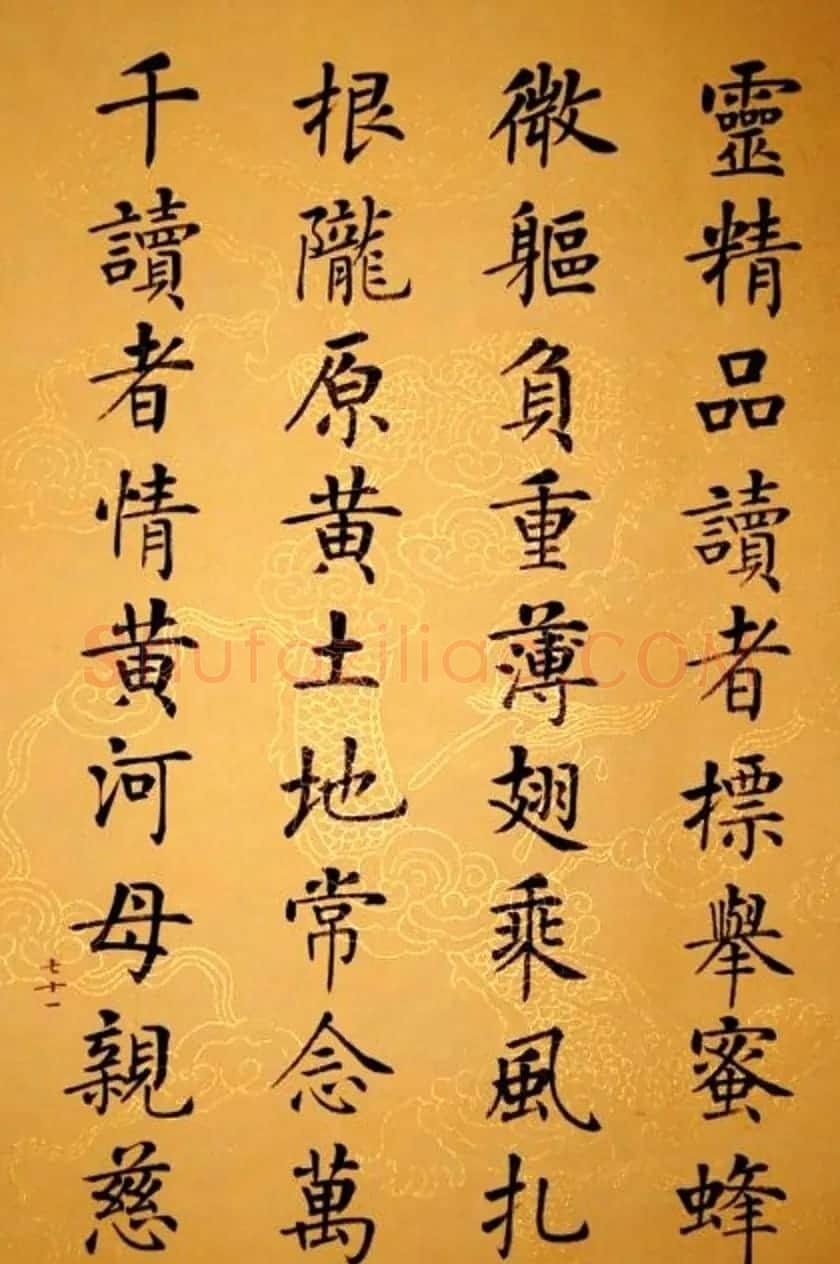 靈精品讀者標舉蜜蜂
微軀負重薄翅乘風扎
根隴原黄土地常念萬
千讀者情黄河母親慈
七十一
Shufaziliao.COM